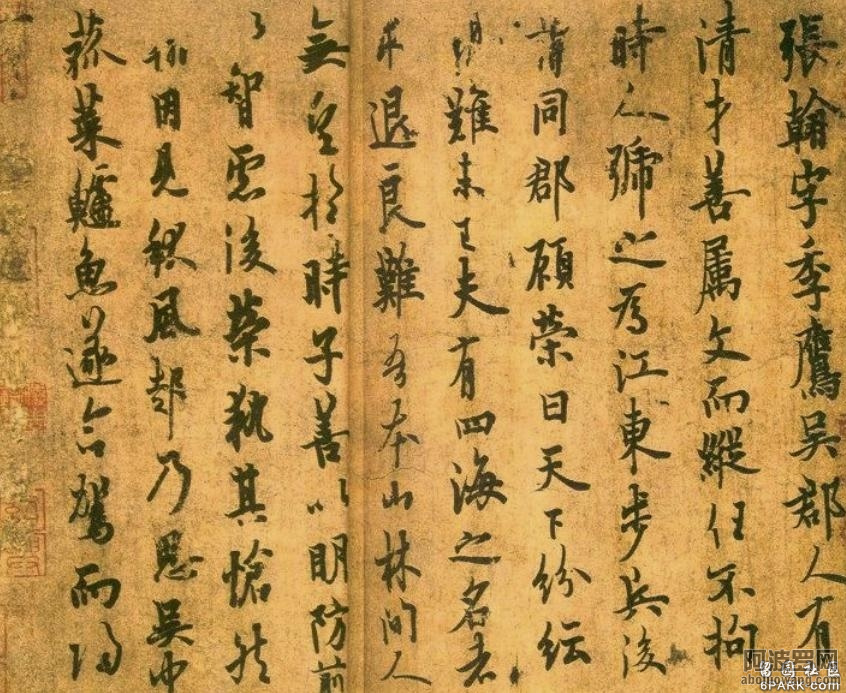 張翰字季鷹吳郡人有
清才善屬文而縱任不拘
時人號之為江東步兵後
謂同郡顧榮曰天下紛紜
禍難未已夫有四海之名者
求退良難吾本山林間人
無望於時子善以明防前
以智慮後榮執其愴然
翰因見秋風起乃思吳中
菰菜鱸魚遂命駕而歸
阿波罗网
aboluowang.com
6PARK.com